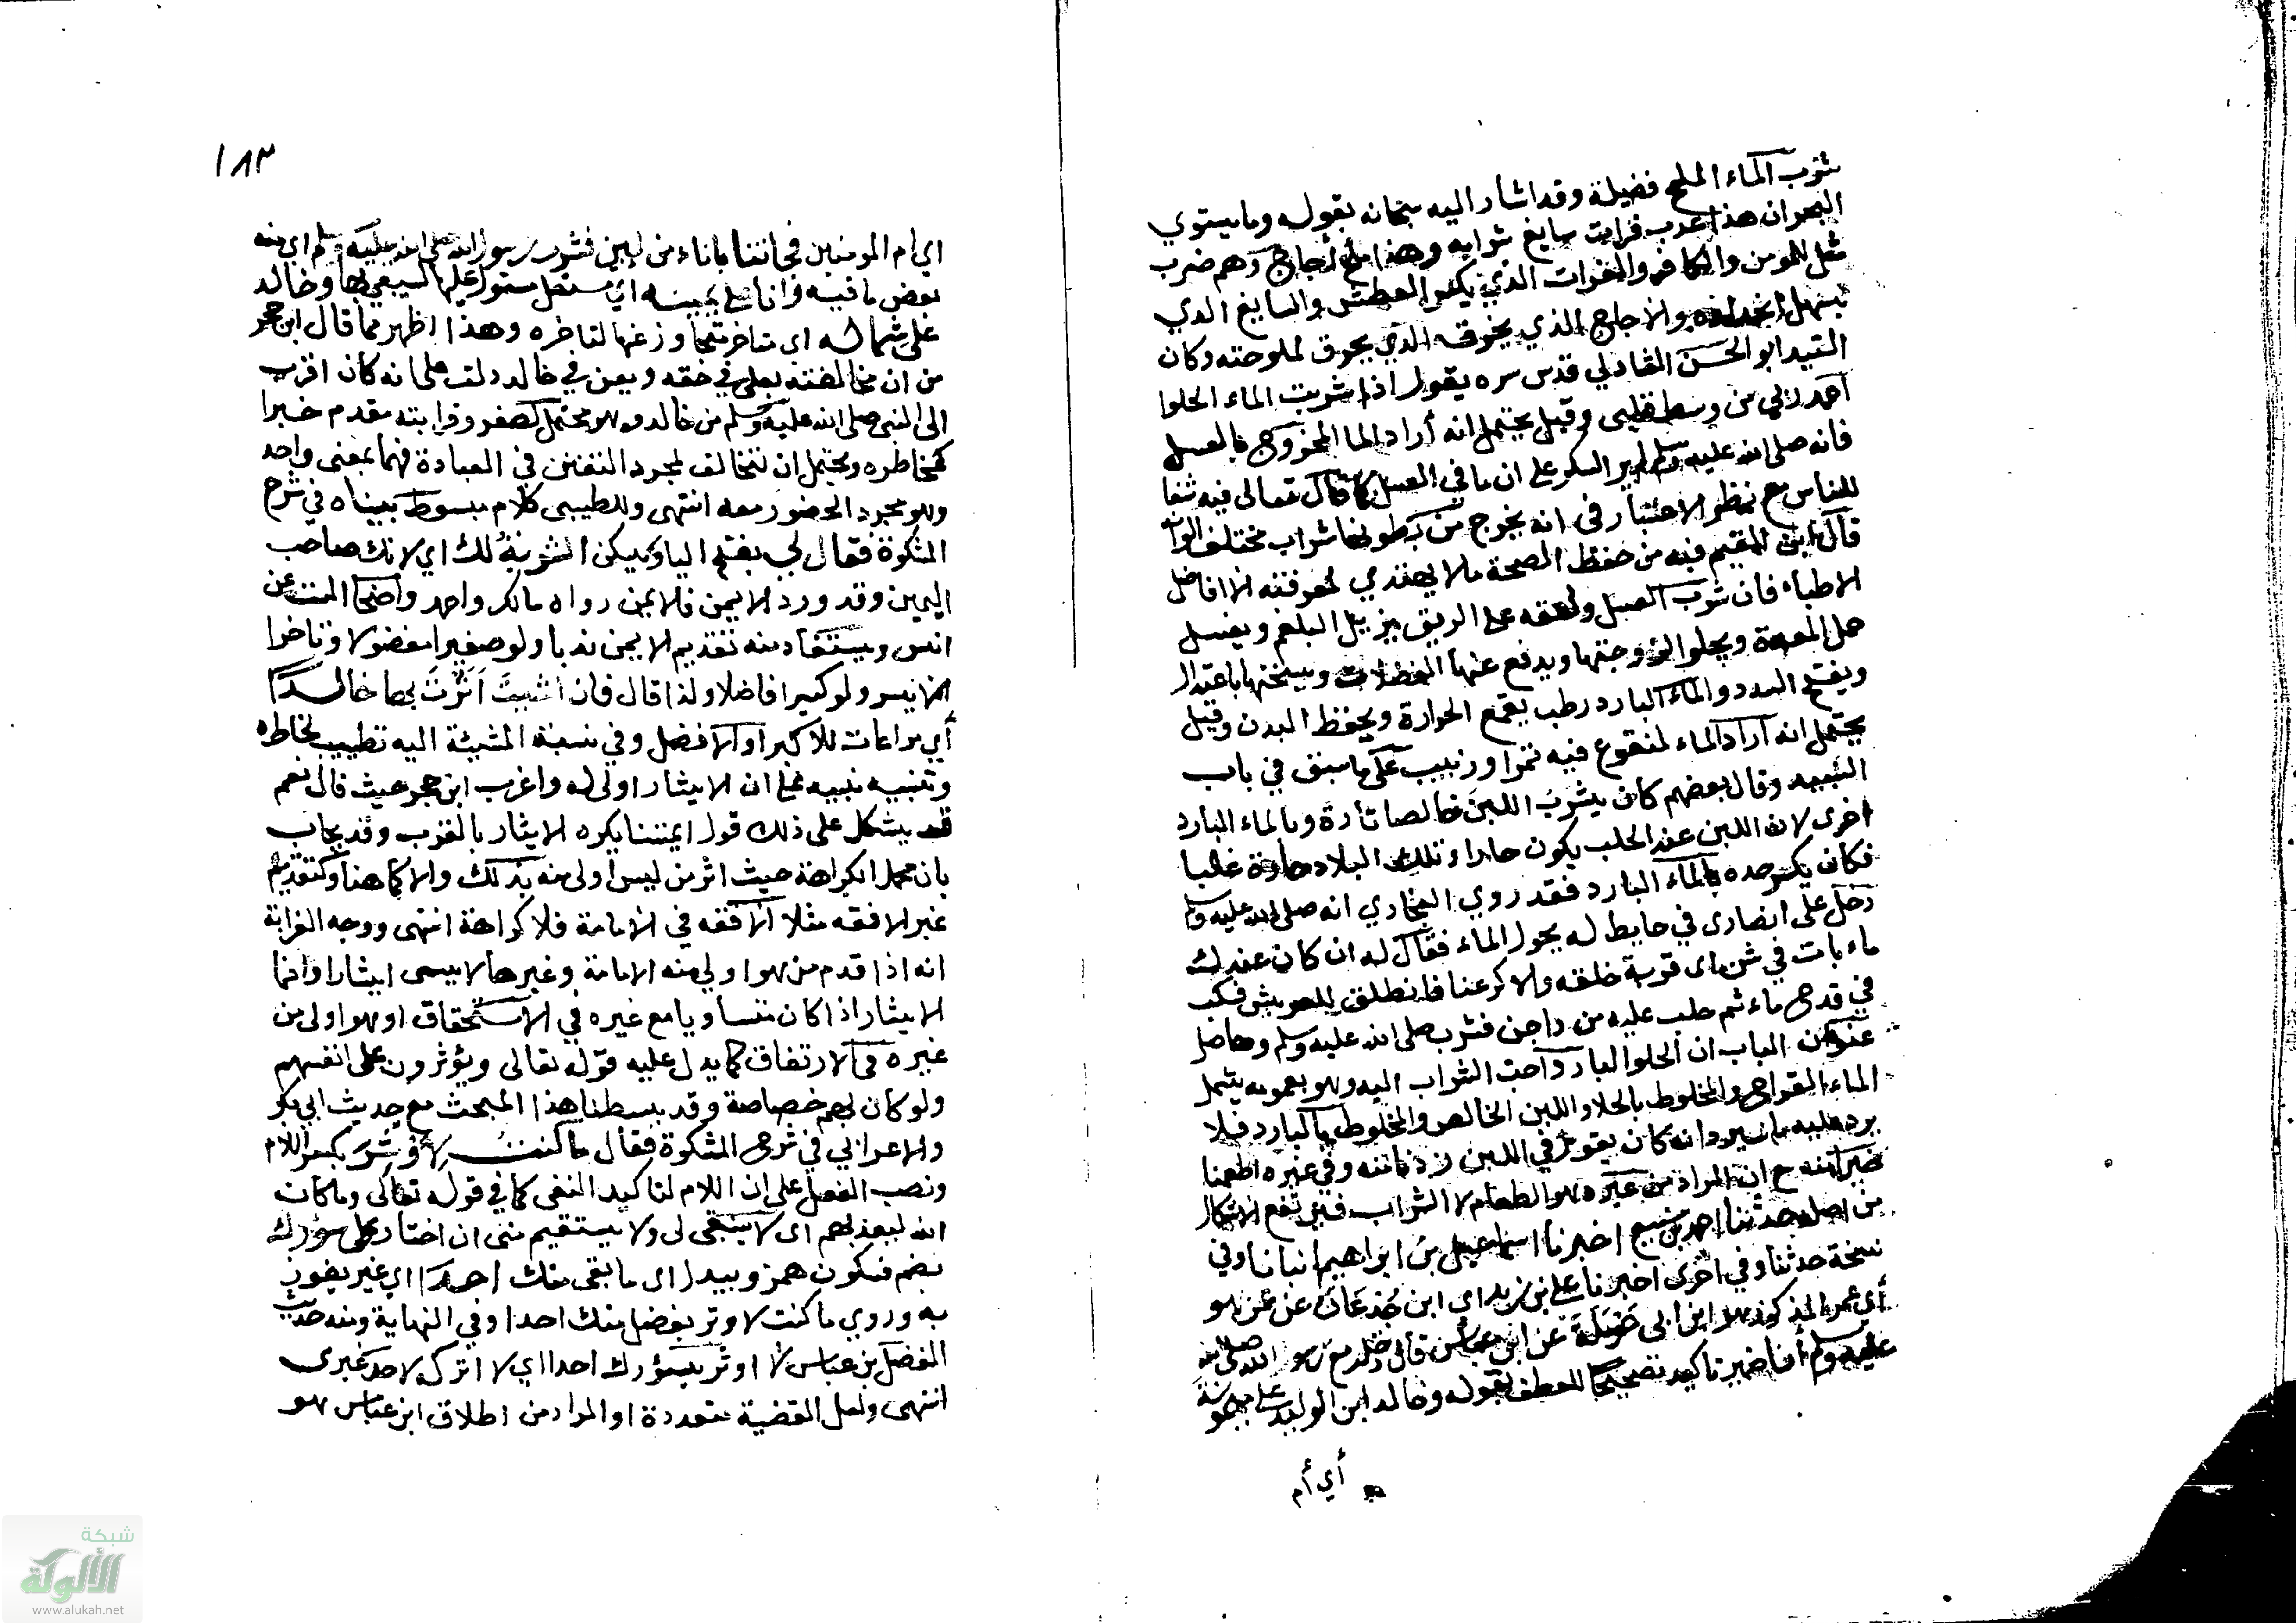 شرب الماء الملح فضيلة وقد اشار اليه سبحانه بقوله وما يستوي
البحران هذا عذب فرات سايغ شرابه وهذا ملح أجاج وهم ضرب
مثل للمومن والكافر والفرات الذي يكسر العطش والسايغ الذي
يسهل انحداره والاجاج الذي يحرق لملوحته وكان
السيد ابو الحسن الشاذلي قدس سره يقول اذا شربت الماء الحلوا
احمد ربي من وسط قلبي وقيل يحتمل انه أراد الما الممزوج بالعسل
فانه صلى الله عليه وسلم على ان ما في العسل كما قال تعالى فيه شفا
للناس مع نظر الاعتبار في انه يخرج من بطونها شراب مختلف الوانه
قال ابن القيم فيه من حفظ الصحة مالا يهتدي لمعرفته الا افاضل
الاطباء فان شرب العسل ولعقه على الريق يزيل البلغم ويغسل
خمل المعدة ويجلوا لزوجتها ويدفع عنها الفضلات ويسخنها باعتدال
ويفتح السدد والماء البارد رطب يقمع الحرارة ويحفظ البدن وقيل
يحتمل انه اراد الماء لمنقوع فيه تمرا وزبيب على ما سبق في باب
النبيذ وقال بعضهم كان يشرب اللبن خالصا تارة وبالماء البارد
اخرى لان اللبن عند الحلب يكون حارا وتلك البلاد حارة غالبا
فكان يكسر حره بالماء البارد فقد روي البخاري انه صلى الله عليه وسلم
دخل على انصارى في حايط له يحول الماء فقال له ان كان عندك
ماء بات في شن اى قربة خلقه والا كرعنا فانطلق للعريش فسكب
في قدح ماء ثم حلب عليه من داجن فشرب صلى الله عليه وسلم وحاصل
عنوان الباب ان الحلوا البارد احب الشراب اليه وهو بعمومه يشمل
الماء القراح والمخلوط بالحلاو اللبن الخالص والمخلوط بالبارد فلا
يرد عليه ما سيرد انه كان يقول في اللبن زدنا منه وفي غيره اطعمنا
خيرا منه مع ان المراد من غيره هو الطعام لا الشراب فيرتفع الاشكال
من اصله حدثنا احمد بن منيع اخبرنا اسماعيل بن ابراهيم انبانا وفي
نسخة حدثنا وفي اخرى اخبرنا علي بن زيد اى ابن جدعان عن عمر هو
أي عمر المذكور هو ابن ابى حرملة عن ابن عباس قال دخلت مع رسول الله صلى الله
عليه وسلم أنا ضمير تاكيد تصحيحا للعطف بقوله وخالد ابن الوليد على ميمونة
أي أم
١٨٣
اي ام المومنين فجاءتنا باناء من لبن فشرب رسول الله صلى الله عليه وسلم اي منه
بعض ما فيه وانا على يمينه اي مستقل مستول عليها وخالد
على شماله اى متاخر لتاخره وهذا اظهر مما قال ابن حجر
من ان مخالفته بعلى في حقه وبعن في خالد دلت على انه كان اقرب
الى النبى صلى الله عليه وسلم من خالد وهو محتمل لصغره وقرابته مقدم خبرا
كمخاطره ويحتمل ان تتخالف لمجرد التفنن في العبادة فهما بمعنى واحد
وهو مجرد الحضور معه انتهى وللطيبى كلام مبسوط بيناه في شرح
المشكوة فقال لي بفتح اليا وتسكن الشربة لك اي لانك صاحب
اليمين وقد ورد الايمن فالايمن رواه مالك واحمد واصحا الست عن
انس ويستفاد منه تقديم الايمن ندبا ولو صغيرا مفضولا وتاخرا
الايسر ولو كبيرا فاضلا ولذا قال فان شيت اثرت بها خالدا
أي مراعات للاكبر او الافضل وفي نسبة المشيئة اليه تطييب لخاطره
وتنبيه نبيه على ان الايثار اولى له واغرب ابن حجر حيث قال نعم
قد يشكل على ذلك قول ايمتنا يكره الايثار بالقرب وقد يجاب
بان محل الكراهة حيث اثر من ليس اولى منه بذلك والا كما هنا وكتقديم
غير الافقه مثلا الافقه في الامامة فلا كراهة انتهى ووجه الغرابة
انه اذا قدم من هوا ولى منه الامامة وغيرها لا يسمى ايثارا وانما
الايثار اذا كان متساويا مع غيره في الاستحقاق او هو اولى من
غيره في الارتفاق كما يدل عليه قوله تعالى ويؤثرون على انفسهم
ولو كان بهم خصاصة وقد بسطنا هذا المبحث مع حديث ابي بكر
والاعرابي في شرح المشكوة فقال ما كنت لأوثر بكسر اللام
ونصب الفعل على ان اللام لتاكيد النفى كما في قوله تعالى وما كان
الله ليعذبهم اى لا ينبغى لى ولا يستقيم منى ان اختار على سؤرك
بضم فسكون همز ويبدل اى ما بقى منك احدا اي غير يفوز
به وروي ما كنت لاوثر بفضل منك احدا وفي النهاية ومنه حديث
الفضل بن عباس لا اوثر بسؤرك احدا اي لا اتركه لاحد غيرى
انتهى ولعل القضية متعددة او المراد من اطلاق ابن عباس هو
شبكة
الألوكة
www.alukah.net